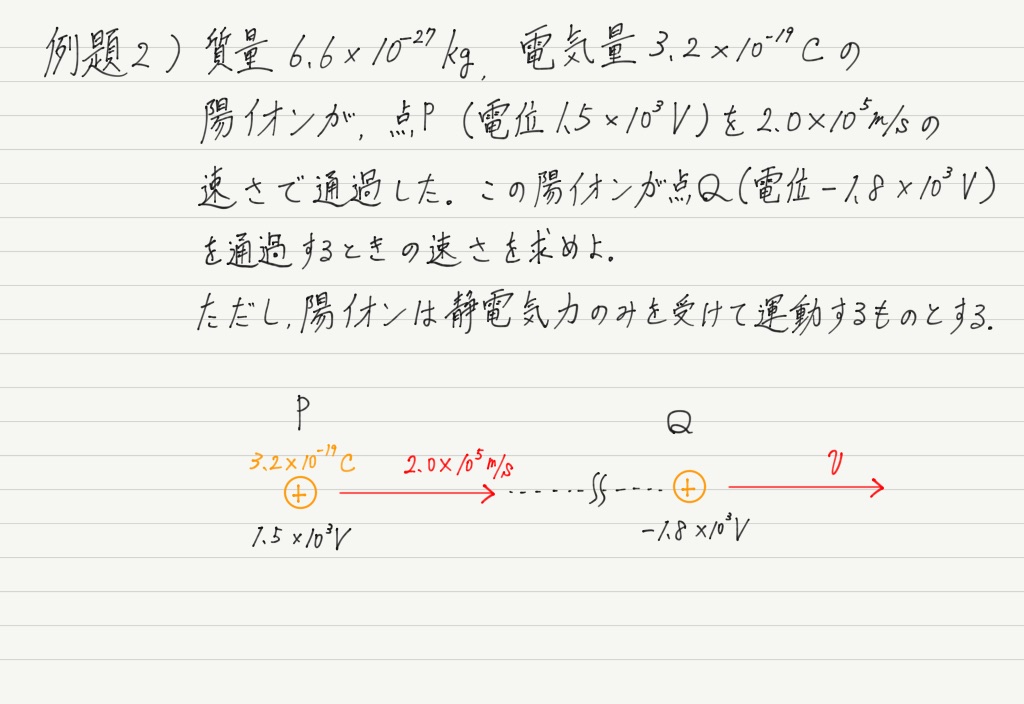 例題2) 質量 6.6×10⁻²⁷kg, 電気量 3.2×10⁻¹⁹Cの
陽イオンが, 点P (電位 1.5×10³V)を 2.0×10⁵m/sの
速さで通過した. この陽イオンが点Q(電位 -1.8×10³V)
を通過するときの速さを求めよ.
ただし, 陽イオンは静電気力のみを受けて運動するものとする.
P
Q
3.2×10⁻¹⁹C
2.0×10⁵m/s
v
+
+
1.5×10³V
-1.8×10³V